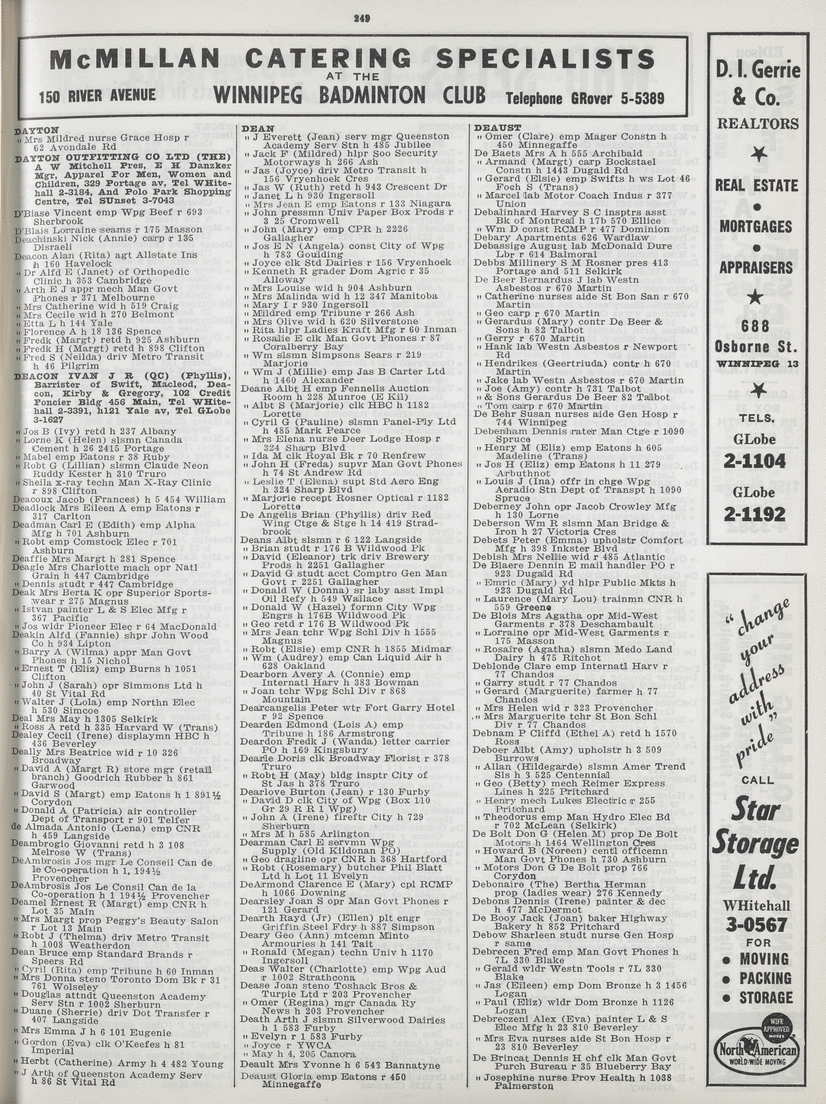 249
McMILLAN CATERING SPECIALISTS
AT THE
150 RIVER AVENUE WINNIPEG BADMINTON CLUB Telephone GRover 5-5389
DAYTON
" Mrs Mildred nurse Grace Hosp r
62 Avondale Rd
DAYTON OUTFITTING CO LTD (THE)
A W Mitchell Pres, E H Danzker
Mgr, Apparel For Men, Women and
Children, 329 Portage av, Tel WHite-
hall 2-3184, And Polo Park Shopping
Centre, Tel SUnset 3-7043
D'Biase Vincent emp Wpg Beef r 693
Sherbrook
D'Blais Lorraine seams r 175 Masson
Deachinski Nick (Annie) carp r 135
Disraeli
Deacon Alan (Rita) agt Allstate Ins
h 160 Havelock
" Dr Alfd E (Janet) of Orthopedic
Clinic h 353 Cambridge
" Arth E J appr mech Man Govt
Phones r 371 Melbourne
" Mrs Catherine wid h 519 Craig
" Mrs Cecile wid h 270 Belmont
" Etta L h 144 Yale
" Florence A h 18 136 Spence
" Fredk (Margt) retd h 925 Ashburn
" Fredk H (Margt) retd h 898 Clifton
" Fred S (Neilda) driv Metro Transit
h 46 Pilgrim
DEACON IVAN J R (QC) (Phyllis),
Barrister of Swift, Macleod, Dea-
con, Kirby & Gregory, 102 Credit
Foncier Bldg 456 Main, Tel WHite-
hall 2-3391, h121 Yale av, Tel GLobe
3-1627
" Jos B (Ivy) retd h 237 Albany
" Lorne K (Helen) slsmn Canada
Cement h 26 2415 Portage
" Mabel emp Eatons r 38 Ruby
" Robt G (Lillian) slsmn Claude Neon
Ruddy Kester h 310 Truro
" Sheila x-ray techn Man X-Ray Clinic
r 898 Clifton
Deacoux Jacob (Frances) h 5 454 William
Deadlock Mrs Eileen A emp Eatons r
317 Carlton
Deadman Carl E (Edith) emp Alpha
Mfg h 701 Ashburn
" Robt emp Comstock Elec r 701
Ashburn
Deaffie Mrs Margt h 281 Spence
Deagle Mrs Charlotte mach opr Natl
Grain h 447 Cambridge
" Dennis studt r 447 Cambridge
Deak Mrs Berta K opr Superior Sports-
wear r 275 Magnus
" Istvan painter L & S Elec Mfg r
367 Pacific
" Jos wldr Pioneer Elec r 64 MacDonald
Deakin Alfd (Fannie) shpr John Wood
Co h 934 Lipton
" Barry A (Wilma) appr Man Govt
Phones h 15 Nichol
" Ernest T (Eliz) emp Burns h 1051
Clifton
" John J (Sarah) opr Simmons Ltd h
40 St Vital Rd
" Walter J (Lola) emp Northn Elec
h 530 Simcoe
Deal Mrs May h 1305 Selkirk
" Ross A retd h 335 Harvard W (Trans)
Dealey Cecil (Irene) displaymn HBC h
436 Beverley
Deally Mrs Beatrice wid r 10 326
Broadway
" David A (Margt R) store mgr (retail
branch) Goodrich Rubber h 861
Garwood
" David S (Margt) emp Eatons h 1 891½
Corydon
" Donald A (Patricia) air controller
Dept of Transport r 901 Telfer
de Almada Antonio (Lena) emp CNR
h 459 Langside
Deambrogio Giovanni retd h 3 108
Melrose W (Trans)
DeAmbrosis Jos mgr Le Conseil Can de
le Co-operation h 1, 194½
Provencher
DeAmbrosis Jos Le Consil Can de la
Co-operation h 1 194½ Provencher
Deamel Ernest R (Margt) emp CNR h
Lot 35 Main
" Mrs Margt prop Peggy's Beauty Salon
r Lot 13 Main
" Robt J (Thelma) driv Metro Transit
h 1008 Weatherdon
Dean Bruce emp Standard Brands r
Speers Rd
" Cyril (Rita) emp Tribune h 60 Inman
" Mrs Donna steno Toronto Dom Bk r 31
761 Wolseley
" Douglas attndt Queenston Academy
Serv Stn r 1002 Sherburn
" Duane (Sherrie) driv Dot Transfer r
407 Langside
" Mrs Emma J h 6 101 Eugenie
" Gordon (Eva) clk O'Keefes h 81
Imperial
" Herbt (Catherine) Army h 4 482 Young
" J Arth of Queenston Academy Serv
h 86 St Vital Rd
DEAN
" J Everett (Jean) serv mgr Queenston
Academy Serv Stn h 485 Jubilee
" Jack F (Mildred) hlpr Soo Security
Motorways h 266 Ash
" Jas (Joyce) driv Metro Transit h
156 Vryenhoek Cres
" Jas W (Ruth) retd h 943 Crescent Dr
" Janet L h 930 Ingersoll
" Mrs Jean E emp Eatons r 133 Niagara
" John pressmn Univ Paper Box Prods r
3 25 Cromwell
" John (Mary) emp CPR h 2226
Gallagher
" Jos E N (Angela) const City of Wpg
h 783 Goulding
" Joyce clk Std Dairies r 156 Vryenhoek
" Kenneth R grader Dom Agric r 35
Alloway
" Mrs Louise wid h 904 Ashburn
" Mrs Malinda wid h 12 347 Manitoba
" Mary I r 930 Ingersoll
" Mildred emp Tribune r 266 Ash
" Mrs Olive wid h 620 Silverstone
" Rita hlpr Ladies Kraft Mfg r 60 Inman
" Rosalie E clk Man Govt Phones r 87
Coralberry Bay
" Wm slsmn Simpsons Sears r 219
Marjorie
" Wm J (Millie) emp Jas B Carter Ltd
h 1460 Alexander
Deane Albt H emp Fennells Auction
Room h 228 Munroe (E Kil)
" Albt S (Marjorie) clk HBC h 1182
Lorette
" Cyril G (Pauline) slsmn Panel-Ply Ltd
h 485 Mark Pearce
" Mrs Elena nurse Deer Lodge Hosp r
324 Sharp Blvd
" Ida M clk Royal Bk r 70 Renfrew
" John H (Freda) supvr Man Govt Phones
h 74 St Andrew Rd
" Leslie T (Elena) supt Std Aero Eng
h 324 Sharp Blvd
" Marjorie recept Rosner Optical r 1182
Lorette
De Angelis Brian (Phyllis) driv Red
Wing Ctge & Stge h 14 419 Strad-
brook
Deans Albt slsmn r 6 122 Langside
" Brian studt r 176 B Wildwood Pk
" David (Eleanor) trk driv Brewery
Prods h 2251 Gallagher
" David G studt acct Comptro Gen Man
Govt r 2251 Gallagher
" Donald W (Donna) sr laby asst Impl
Oil Refy h 549 Wallace
" Donald W (Hazel) formn City Wpg
Engrs h 176B Wildwood Pk
" Geo retd r 176 B Wildwood Pk
" Mrs Jean tchr Wpg Schl Div h 1555
Magnus
" Robt (Elsie) emp CNR h 1855 Midmar
" Wm (Audrey) emp Can Liquid Air h
628 Oakland
Dearborn Avery A (Connie) emp
Internatl Harv h 383 Bowman
" Joan tchr Wpg Schl Div r 868
Mountain
Dearcangelis Peter wtr Fort Garry Hotel
r 92 Spence
Dearden Edmond (Lois A) emp
Tribune h 186 Armstrong
Deardon Fredk J (Wanda) letter carrier
PO h 169 Kingsbury
Dearle Doris clk Broadway Florist r 378
Truro
" Robt H (May) bldg insptr City of
St Jas h 378 Truro
Dearlove Burton (Jean) r 130 Furby
" David D clk City of Wpg (Box 110
Gr 29 R R 1 Wpg)
" John A (Irene) fireftr City h 729
Sherburn
" Mrs M h 585 Arlington
Dearman Carl E servmn Wpg
Supply (Old Kildonan PO)
" Geo dragline opr CNR h 368 Hartford
" Robt (Rosemary) butcher Phil Blatt
Ltd h Lot 11 Evelyn
DeArmond Clarence E (Mary) cpl RCMP
h 1066 Downing
Dearsley Joan S opr Man Govt Phones r
121 Gerard
Dearth Rayd (Jr) (Ellen) plt engr
Griffin Steel Fdry h 887 Simpson
Deary Geo (Ann) mtcenn Minto
Armouries h 141 Tait
" Ronald (Megan) techn Univ h 1170
Ingersoll
Deas Walter (Charlotte) emp Wpg Aud
r 1002 Strathcona
Dease Joan steno Toshack Bros &
Turpie Ltd r 203 Provencher
" Omer (Regina) mgr Canada Ry
News h 203 Provencher
Death Arth J slsmn Silverwood Dairies
h 1 583 Furby
" Evelyn r 1 583 Furby
" Joyce r YWCA
" May h 4, 205 Canora
Deault Mrs Yvonne h 6 543 Bannatyne
Deaust Gloria emp Eatons r 450
Minnegaffe
DEAUST
" Omer (Clare) emp Mager Constn h
450 Minnegaffe
De Baets Mrs A h 555 Archibald
" Armand (Margt) carp Bockstael
Constn h 1443 Dugald Rd
" Gerard (Elsie) emp Swifts h ws Lot 46
Foch S (Trans)
" Marcel lab Motor Coach Indus r 377
Union
Debalinhard Harvey S C insptrs asst
Bk of Montreal h 17b 570 Ellice
" Wm D const RCMP r 477 Dominion
Debary Apartments 626 Wardlaw
Debassige August lab McDonald Dure
Lbr r 614 Balmoral
Debbs Millinery S M Rosner pres 413
Portage and 511 Selkirk
De Beer Bernardus J lab Westn
Asbestos r 670 Martin
" Catherine nurses aide St Bon San r 670
Martin
" Geo carp r 670 Martin
" Gerardus (Mary) contr De Beer &
Sons h 82 Talbot
" Gerry r 670 Martin
" Hank lab Westn Asbestos r Newport
Rd
" Hendrikes (Geertriuda) contr h 670
Martin
" Jake lab Westn Asbestos r 670 Martin
" Joe (Amy) contr h 731 Talbot
" & Sons Gerardus De Beer 82 Talbot
" Tom carp r 670 Martin
De Behr Susan nurses aide Gen Hosp r
744 Winnipeg
Debenham Dennis rater Man Ctge r 1090
Spruce
" Henry M (Eliz) emp Eatons h 605
Madeline (Trans)
" Jos H (Eliz) emp Eatons h 11 279
Arbuthnot
" Louis J (Ina) offr in chge Wpg
Aeradio Stn Dept of Transpt h 1090
Spruce
Deberney John opr Jacob Crowley Mfg
h 130 Lorne
Deberson Wm R slsmn Man Bridge &
Iron h 27 Victoria Cres
Debets Peter (Emma) upholstr Comfort
Mfg h 398 Inkster Blvd
Debish Mrs Nellie wid r 485 Atlantic
De Blaere Dennis E mail handler PO r
923 Dugald Rd
" Emric (Mary) yd hlpr Public Mkts h
923 Dugald Rd
" Laurence (Mary Lou) trainmn CNR h
559 Greene
De Blois Mrs Agatha opr Mid-West
Garments r 378 Deschambault
" Lorraine opr Mid-West Garments r
175 Masson
" Rosaire (Agatha) slsmn Medo Land
Dairy h 475 Ritchot
Deblonde Clare emp Internatl Harv r
77 Chandos
" Garry studt r 77 Chandos
" Gerard (Marguerite) farmer h 77
Chandos
" Mrs Helen wid r 323 Provencher
" Mrs Marguerite tchr St Bon Schl
Div r 77 Chandos
Debnam P Cliffd (Ethel A) retd h 1570
Ross
Deboer Albt (Amy) upholstr h 3 509
Burrows
" Allan (Hildegarde) slsmn Amer Trend
Sls h 3 525 Centennial
" Geo (Betty) mech Reimer Express
Lines h 225 Pritchard
" Henry mech Lukes Electric r 255
Pritchard
" Theodorus emp Man Hydro Elec Bd
r 702 McLean (Selkirk)
De Bolt Don G (Helen M) prop De Bolt
Motors h 1464 Wellington Cres
" Howard B (Noreen) centl officemn
Man Govt Phones h 730 Ashburn
" Motors Don G De Bolt prop 766
Corydon
Debonaire (The) Bertha Herman
prop (ladies wear) 276 Kennedy
Debons Dennis (Irene) painter & dec
h 477 McDermot
De Booy Jack (Joan) baker Highway
Bakery h 852 Pritchard
Debow Sharleen studt nurse Gen Hosp
r same
Debrecen Fred emp Man Govt Phones h
7L 330 Blake
" Gerald wldr Westn Tools r 7L 330
Blake
" Jas (Eileen) emp Dom Bronze h 3 1456
Logan
" Paul (Eliz) wldr Dom Bronze h 1126
Logan
Debreczeni Alex (Eva) painter L & S
Elec Mfg h 23 810 Beverley
" Mrs Eva nurses aide St Bon Hosp r
23 810 Beverley
De Brincat Dennis H chf clk Man Govt
Purch Bureau r 35 Blueberry Bay
" Josephine nurse Prov Health h 1038
Palmerston
D. I. Gerrie
& Co.
REALTORS
REAL ESTATE
•
MORTGAGES
•
APPRAISERS
688
Osborne St.
WINNIPEG 13
TELS.
GLobe
2-1104
GLobe
2-1192
"change
your
address
with
pride"
CALL
Star
Storage
Ltd.
WHitehall
3-0567
FOR
• MOVING
• PACKING
• STORAGE
WIFE
APPROVED
MOVES
North American
WORLD-WIDE MOVING